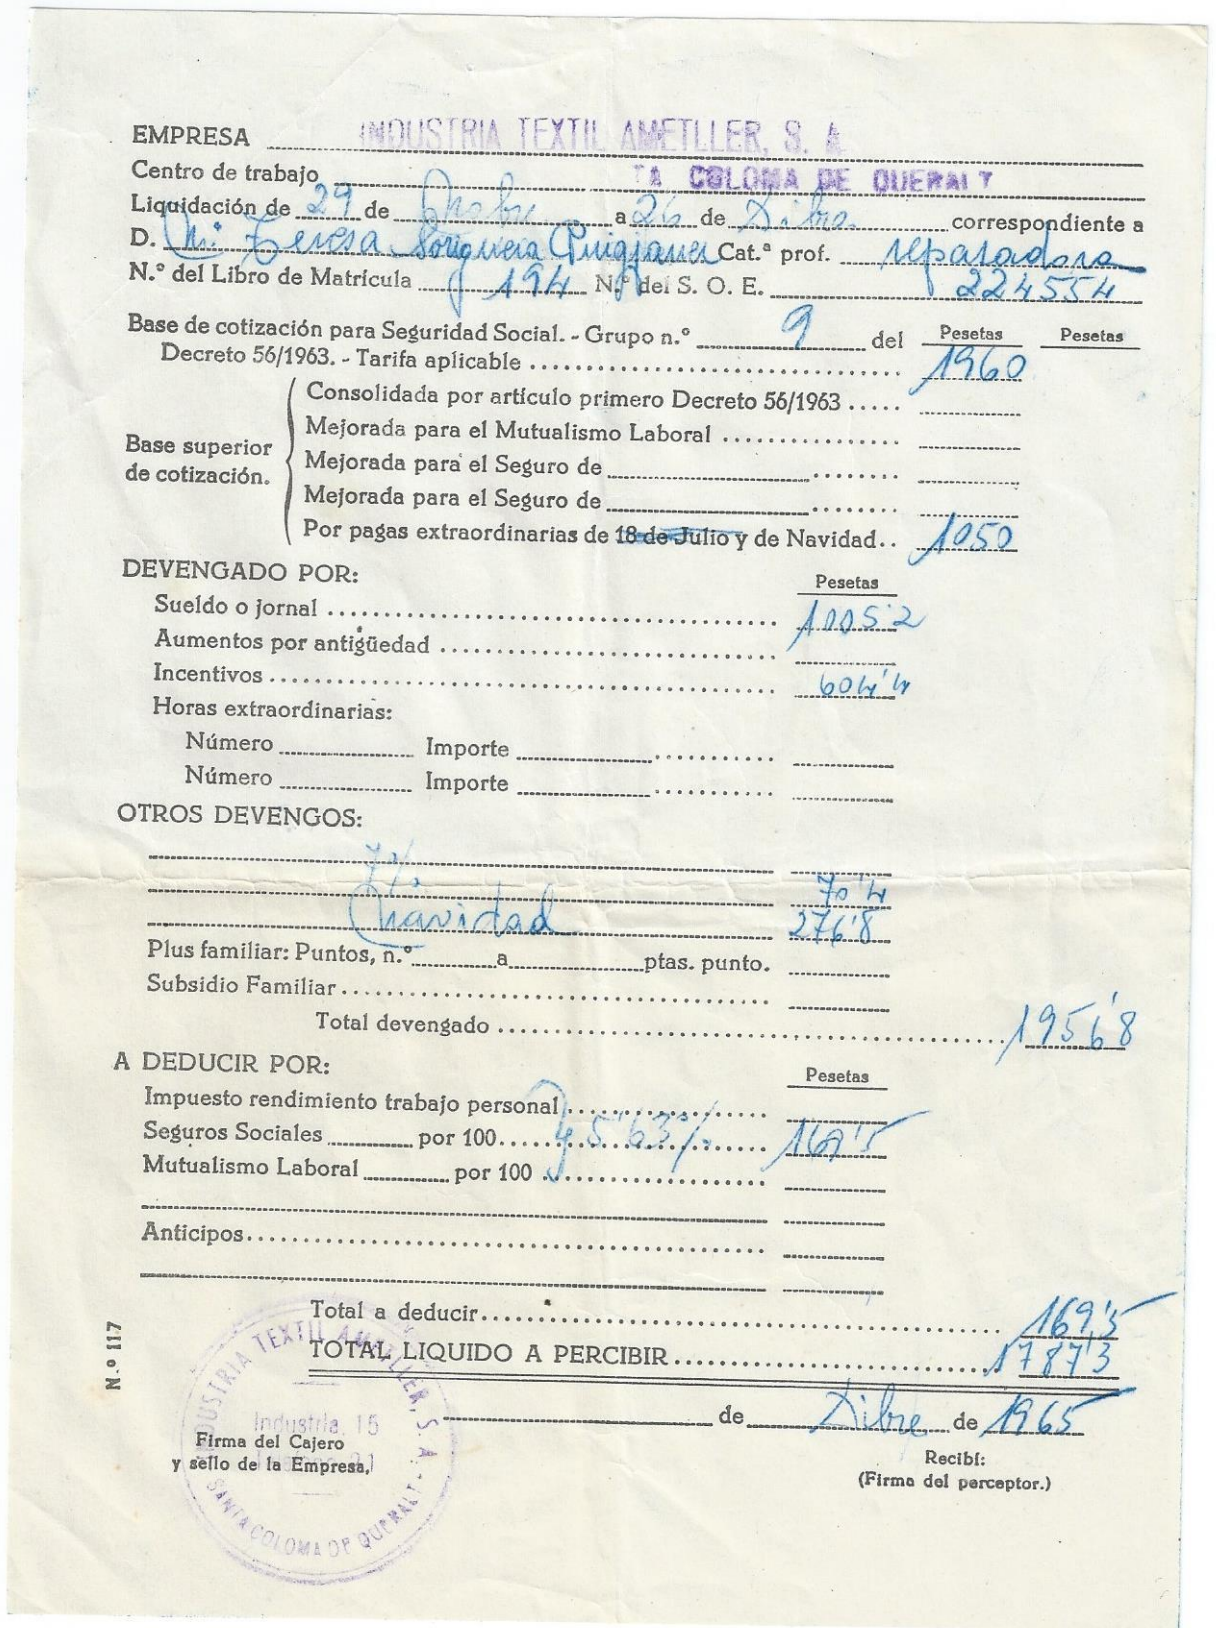 EMPRESA INDUSTRIA TEXTIL AMETLLER, S. A
Centro de trabajo TA COLOMA DE QUERALT
Liquidación de 29 de Nvbre a 26 de Dibre. correspondiente a
D. Mª Teresa Soriguera Puigjaner Cat.ª prof. repasadora
N.º del Libro de Matrícula 194 N.º del S. O. E. 224554
Base de cotización para Seguridad Social. - Grupo n.º 9 del Pesetas Pesetas
Decreto 56/1963. - Tarifa aplicable 1960
Base superior de cotización.
Consolidada por artículo primero Decreto 56/1963
Mejorada para el Mutualismo Laboral
Mejorada para el Seguro de
Mejorada para el Seguro de
Por pagas extraordinarias de 18 de Julio y de Navidad.. 1050
DEVENGADO POR: Pesetas
Sueldo o jornal 1005'2
Aumentos por antigüedad
Incentivos 604'4
Horas extraordinarias:
Número Importe
Número Importe
OTROS DEVENGOS:
7% 70'4
Navidad 276'8
Plus familiar: Puntos, n.º a ptas. punto.
Subsidio Familiar
Total devengado 1956'8
A DEDUCIR POR: Pesetas
Impuesto rendimiento trabajo personal
Seguros Sociales por 100 5'63% 169'5
Mutualismo Laboral por 100
Anticipos
Total a deducir 169'5
TOTAL LIQUIDO A PERCIBIR 1787'3
de Dibre de 1965
N.º 117
INDUSTRIA TEXTIL AMETLLER, S. A.
Industria, 15
SANTA COLOMA DE QUERALT
Firma del Cajero
y sello de la Empresa,
Recibí:
(Firma del perceptor.)